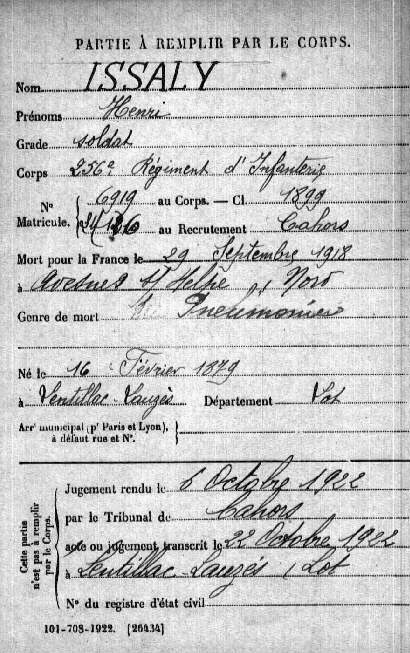 PARTIE À REMPLIR PAR LE CORPS.
Nom ISSALY
Prénoms Henri
Grade soldat
Corps 256e Régiment d'Infanterie
N° 6919 au Corps. — Cl 1899
Matricule. au Recrutement Cahors
Mort pour la France le 29 Septembre 1918
à Avesnes s/ Helpe Nord
Genre de mort Pneumonie
Né le 16 Février 1879
à Lentillac-Lauzès Département Lot
Arr' municipal (p' Paris et Lyon),
à défaut rue et N°.
Cette partie
n'est pas à remplir
par le Corps.
Jugement rendu le 6 Octobre 1922
par le Tribunal de Cahors
acte ou jugement transcrit le 22 Octobre 1922
à Lentillac-Lauzès, Lot
N° du registre d'état civil
101-708-1922. [26434]